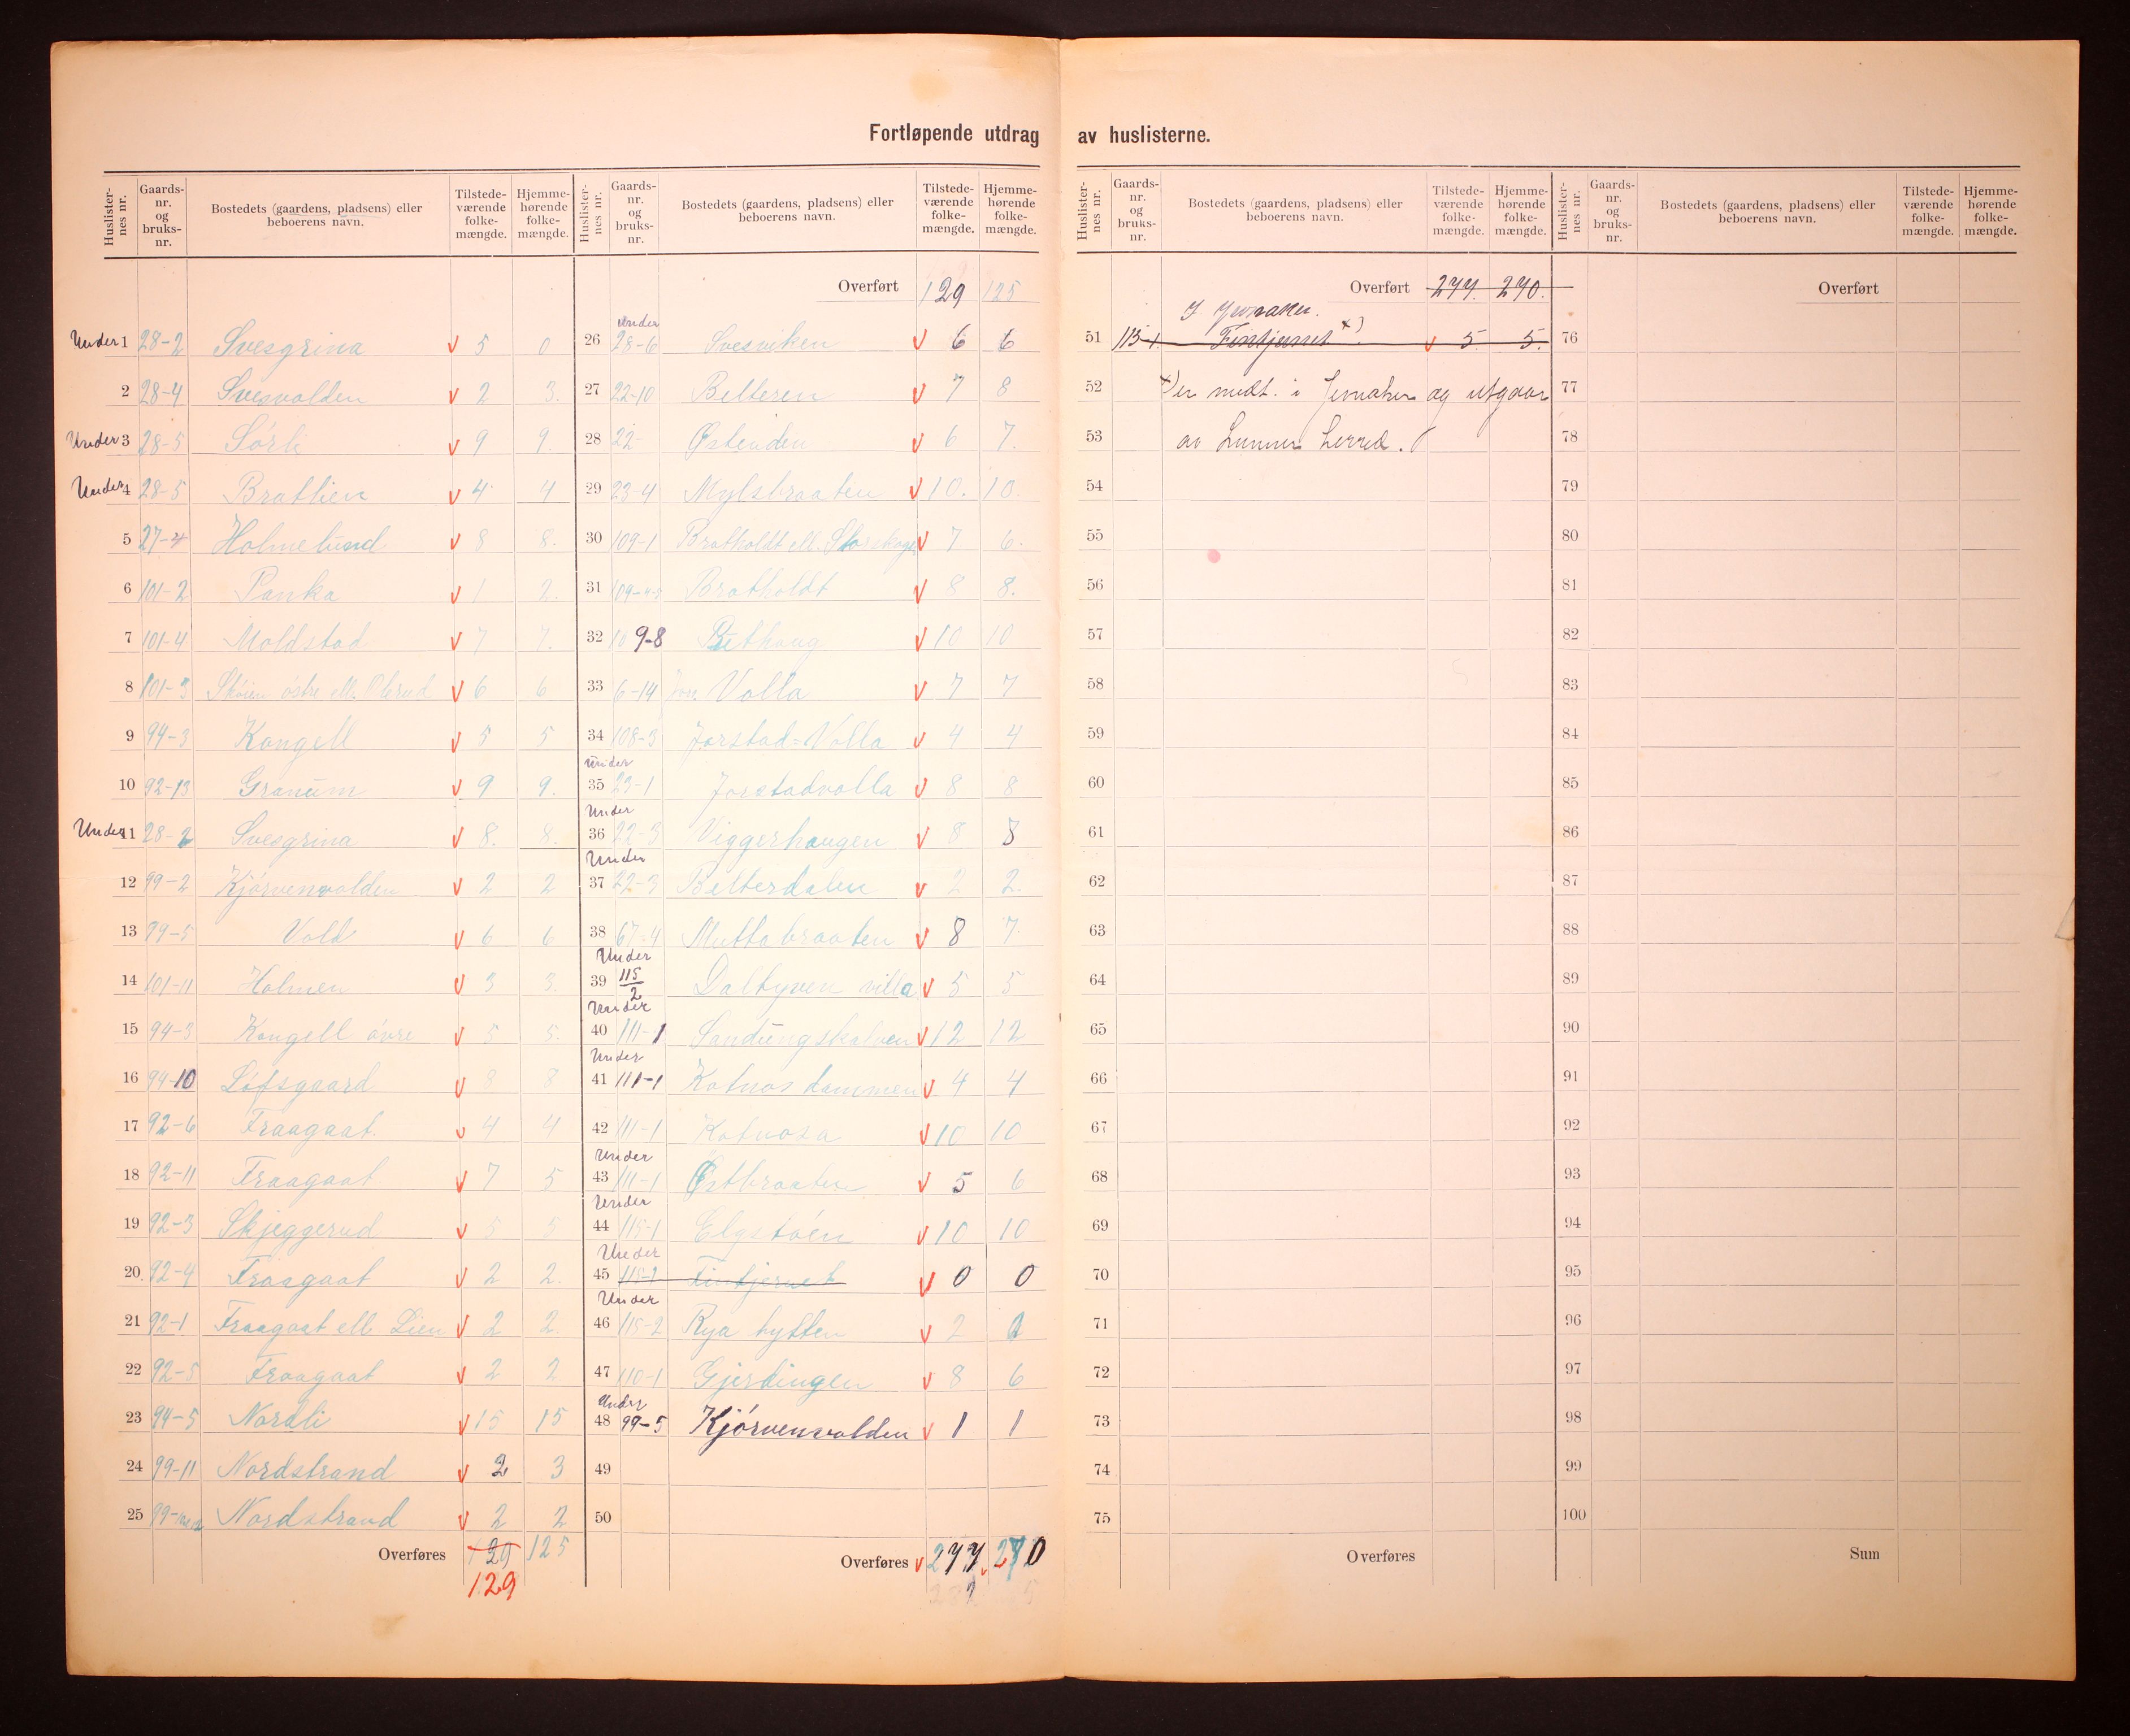 Fortløpende utdrag av huslisterne.
Huslisternes nr. Gaards-nr. og bruks-nr. Bostedets (gaardens, pladsens) eller beboerens navn. Tilstede-værende folke-mængde. Hjemme-hørende folke-mængde.
Under 1 28-2 Svesgrina v 5 0
2 28-4 Svesvolden v 2 3.
Under 3 28-5 Sørli v 9 9.
Under 4 28-5 Bratlien v 4 4
5 27-4 Holmelund v 8 8.
6 101-2 Panka v 1 2.
7 101-4 Moldstad v 7 7.
8 101-3 Skøien østre ell. Olerud v 6 6
9 94-3 Kongell v 5 5
10 92-13 Granum v 9 9.
Under 11 28-2 Svesgrina v 8. 8.
12 99-2 Kjørvenvolden v 2 2
13 99-5 Vold v 6 6
14 101-11 Holmen v 3 3.
15 94-3 Kongell øvre v 5 5.
16 94-10 Løfsgaard v 8 8
17 92-6 Fraagaat. v 4 4
18 92-11 Fraagaat v 7 5
19 92-3 Skjeggerud v 5 5
20 92-4 Fraagaat v 2 2.
21 92-1 Fraagaat ell Lien v 2 2
22 92-5 Fraagaat v 2 2
23 94-5 Nordli v 15 15
24 99-11 Nordstrand v 2 3
25 99- Nordstrand v 2 2
Overføres 129 125
129
Huslisternes nr. Gaards-nr. og bruks-nr. Bostedets (gaardens, pladsens) eller beboerens navn. Tilstede-værende folke-mængde. Hjemme-hørende folke-mængde.
Overført 129 125
26 Under 28-6 Svesviken v 6 6
27 22-10 Belteren v 7 8
28 22- Østenden v 6 7.
29 23-4 Mylsbraaten v 10. 10.
30 109-1 Bratholdt ell. Storskogen v 7 6.
31 109-4-5 Bratholdt v 8 8.
32 109-8 Rethaug v 10 10
33 6-14 Volla v 7 7
34 108-3 Jorstad=Volla v 4 4
Under 35 23-1 Jorstadvolla v 8 8
Under 36 22-3 Viggerhaugen v 8 8
Under 37 22-3 Belterdalen v 2 2.
38 67-4 Muttabraaten v 8 7
Under 39 115/2 Daltyven villa v 5 5
Under 40 111-1 Sandungskalven v 12 12
Under 41 111-1 Katnosdammen v 4 4
42 111-1 Katnosa v 10 10
Under 43 111-1 Østbraaten v 5 6
Under 44 115-1 Elgstøen v 10 10
Under 45 115-1 Fintjernet v 0 0
Under 46 115-2 Ryahytten v 2 1
47 110-1 Gjerdingen v 8 6
Under 48 99-5 Kjørvenvolden v 1 1
49
50
Overføres v 277. 270
Huslisternes nr. Gaards-nr. og bruks-nr. Bostedets (gaardens, pladsens) eller beboerens navn. Tilstede-værende folke-mængde. Hjemme-hørende folke-mængde.
Overført 277. 270.
I Jevnaker.
51 113-1. Fintjernet x) v 5. 5.
52 x) er medt. i Jevnaker og utgaar
53 av Lunner herred.
54
55
56
57
58
59
60
61
62
63
64
65
66
67
68
69
70
71
72
73
74
75
Overføres
Huslisternes nr. Gaards-nr. og bruks-nr. Bostedets (gaardens, pladsens) eller beboerens navn. Tilstede-værende folke-mængde. Hjemme-hørende folke-mængde.
Overført
76
77
78
79
80
81
82
83
84
85
86
87
88
89
90
91
92
93
94
95
96
97
98
99
100
Sum